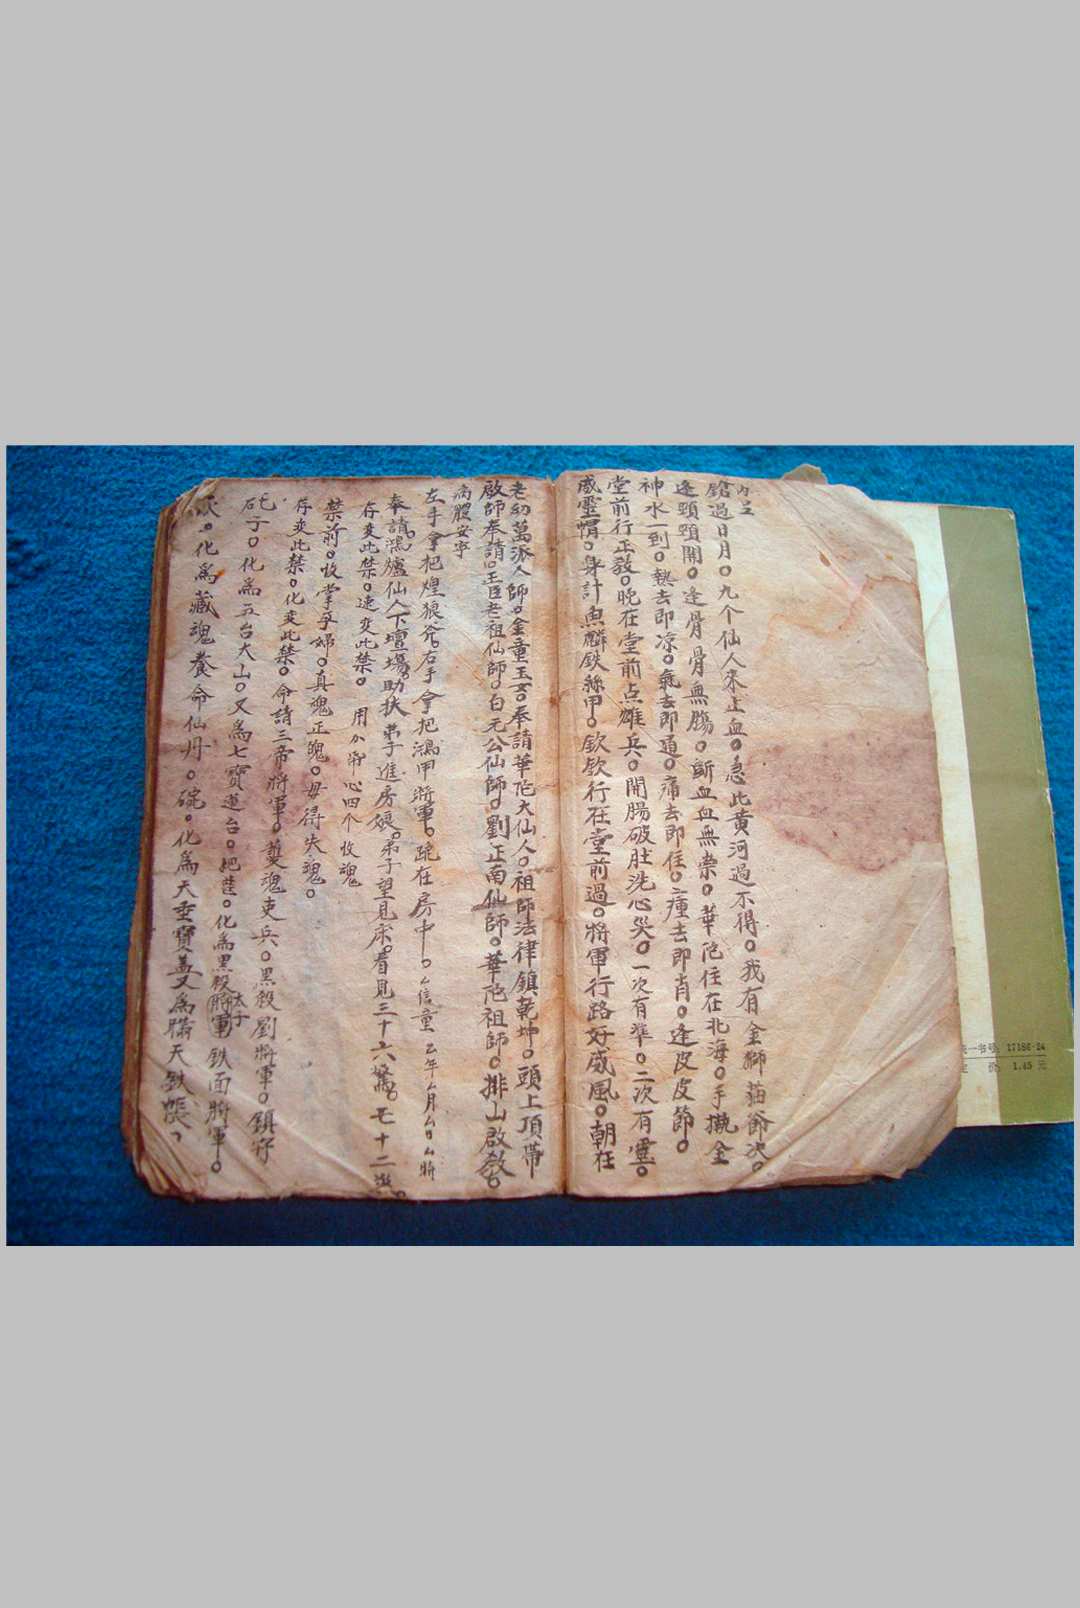 鎗過日月。九个仙人來止血。急此黄河過不得。我有金獅茁節次。
逢頸頸開。逢骨骨無腸。斷血血無崇。華陀住在北海。手擑金
神水一到。熱去即凉。氣去即通。痛去即住。瘇去即肖。逢皮皮節。
堂前行正教。晚在堂前点雄兵。開腸破肚洗心哭。一次有準。二次有靈。
威靈帽。身計魚麟鉄絲甲。欽欽行在堂前過。將軍行路好威風。朝在
老幼萬派人師。金童玉女。奉請華陀大仙人。祖師法律鎮乾坤。頭上頂帶
啟師奉請。王臣老祖仙師。白元公仙師。劉正南仙師。華陀祖師。排山啟教。
病體安寧
左手拿把煌狼斧。右手拿把鴻甲將軍。跪在房中。厶信童 乙年厶月厶日厶將
奉請鴻爐仙人下壇塲。助扶弟子進房娘。弟子望見床。看見三十六萬。七十二
存変此禁。速変此禁。 用 心四个收魂
禁前。收掌孕婦。真魂正魄。毋得失魂。
存変此禁。化変此禁。命請三帝將軍。 魂吏兵。黑殺劉將軍。鎮守
砣子。化為五台大山。又為七寶蓮台。 化為黑殺將軍 太子 鉄面將軍。
化為藏魂養命仙丹。碗。化為天 寶蓋又為 天鉄帳
一书号 17186·24
定 价 1.45 元